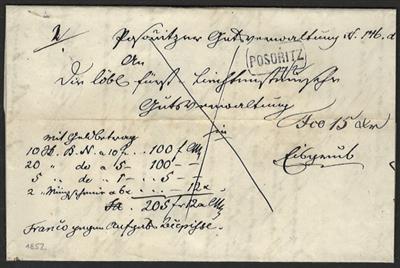 Posořitzer Gutsverwaltung N. 146. d
POSORITZ
An
Die löbl fürst. Liechtensteinsche
Gutsverwaltung
in
Fco 15
Eisgrub
mit Geldbetrag
10 St. B. N. a 10 f. . . 100 f CMz
20 " do a 5 - 100 — —
5 " de " 1 - . . 5 — —
2 Münzscheine a 6x . . . — 12x
205 f 12x CMz
Franco gegen Aufgabs Recepisse.
1852.